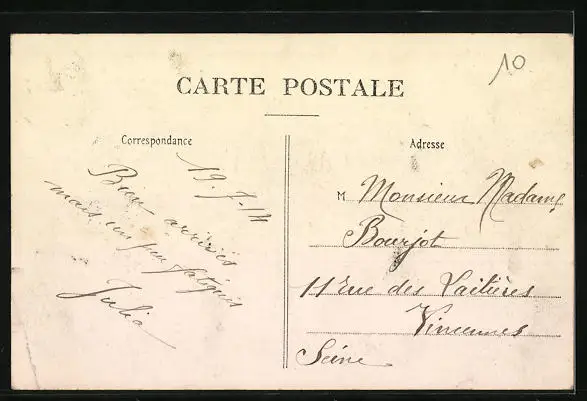 10
CARTE POSTALE
Correspondance
19.7.14
Bien arrivés
mais un peu fatigués
Julia
Adresse
M Monsieur Madame
Bourjot
11 rue des Laitières
Vincennes
Seine